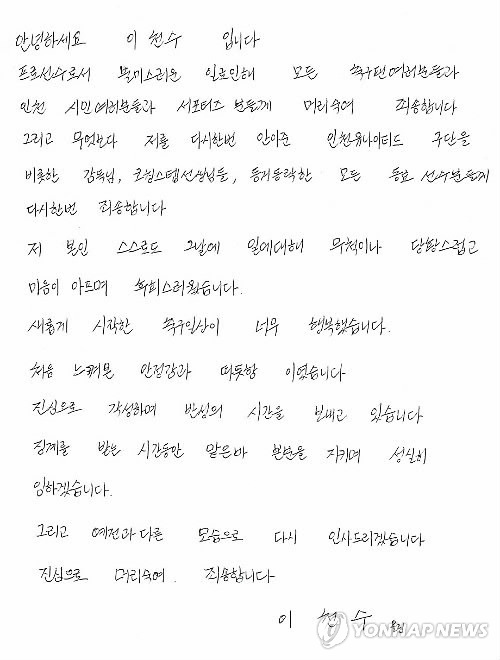 안녕하세요 이천수 입니다
프로선수로서 불미스러운 일로인해 모든 축구팬여러분들과
인천 시민여러분들과 서포터즈 분들께 머리숙여 죄송합니다
그리고 무엇보다 저를 다시한번 안아준 인천유나이티드 구단을
비롯한 감독님, 코칭스텝선생님들, 동거동락한 모든 동료 선수분들께
다시한번 죄송합니다
저 본인 스스로도 그날에 일에대해 무척이나 당황스럽고
마음이 아프며 수치스러웠습니다.
새롭게 시작한 축구인생이 너무 행복했습니다.
처음 느껴본 안정감과 따듯함 이었습니다
진심으로 각성하며 반성의 시간을 보내고 있습니다
징계를 받는 시간동안 맡은바 본분을 지키며 성실히
임하겠습니다.
그리고 예전과다른 모습으로 다시 인사드리겠습니다
진심으로 머리숙여. 죄송합니다
이 천 수 올림
YONHAP NEWS